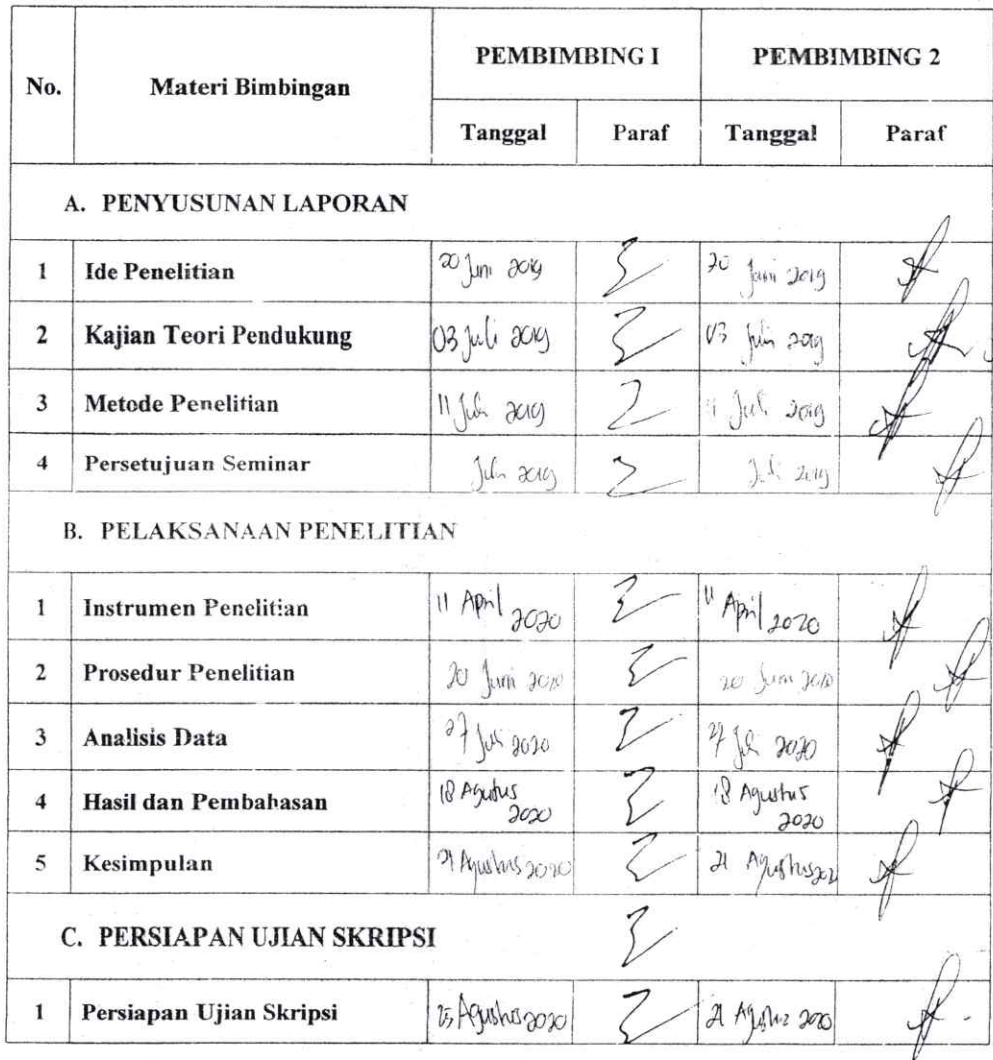 No. Materi Bimbingan PEMBIMBING I PEMBIMBING 2
Tanggal Paraf Tanggal Paraf
A. PENYUSUNAN LAPORAN
1 Ide Penelitian 20 Juni 2019 20 Juni 2019
2 Kajian Teori Pendukung 03 Juli 2019 03 Juli 2019
3 Metode Penelitian 11 Juli 2019 11 Juli 2019
4 Persetujuan Seminar Juli 2019 Juli 2019
B. PELAKSANAAN PENELITIAN
1 Instrumen Penelitian 11 April 2020 11 April 2020
2 Prosedur Penelitian 20 Juni 2020 20 Juni 2020
3 Analisis Data 27 Juli 2020 27 Juli 2020
4 Hasil dan Pembahasan 18 Agustus 2020 18 Agustus 2020
5 Kesimpulan 21 Agustus 2020 21 Agustus 202
C. PERSIAPAN UJIAN SKRIPSI
1 Persiapan Ujian Skripsi Agustus 2020 21 Agustus 2020